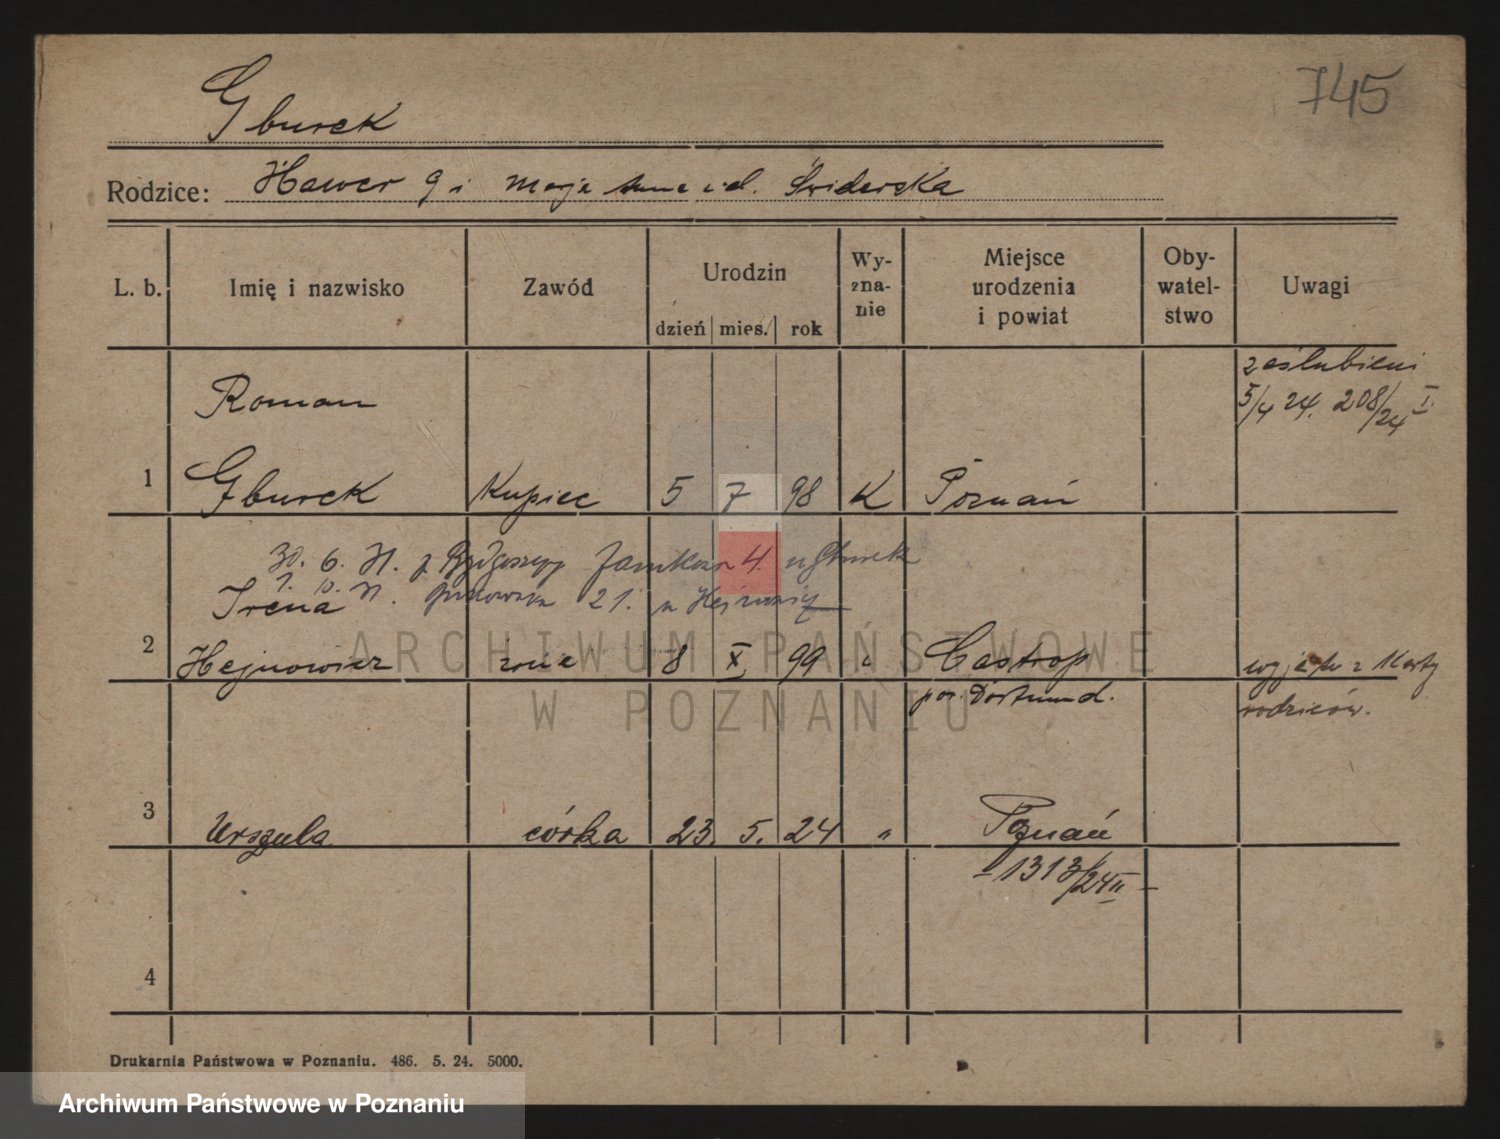 745
Gburek
Rodzice: Xawer G i Marjanna z d. Świderska
L. b. Imię i nazwisko Zawód Urodzin Wy-zna-nie Miejsce urodzenia i powiat Oby-watel-stwo Uwagi
dzień mies. rok
Roman zaślubieni
5/4 24. 208/24 I.
1 Gburek Kupiec 5 7 98 K Poznań
30. 6. 31. z Bydgoszczy 4. u Gburek
1. 10. 31. 21. u
Irena
2 Hejnowicz żona 8 X 99 " Castrop
pow. Dortmund. wyjęto z Karty
rodziców.
3 Urszula córka 23. 5. 24 " Poznań
- 1313/24 II -
4
Drukarnia Państwowa w Poznaniu. 486. 5. 24. 5000.
ARCHIWUM PAŃSTWOWE
W POZNANIU
Archiwum Państwowe w Poznaniu